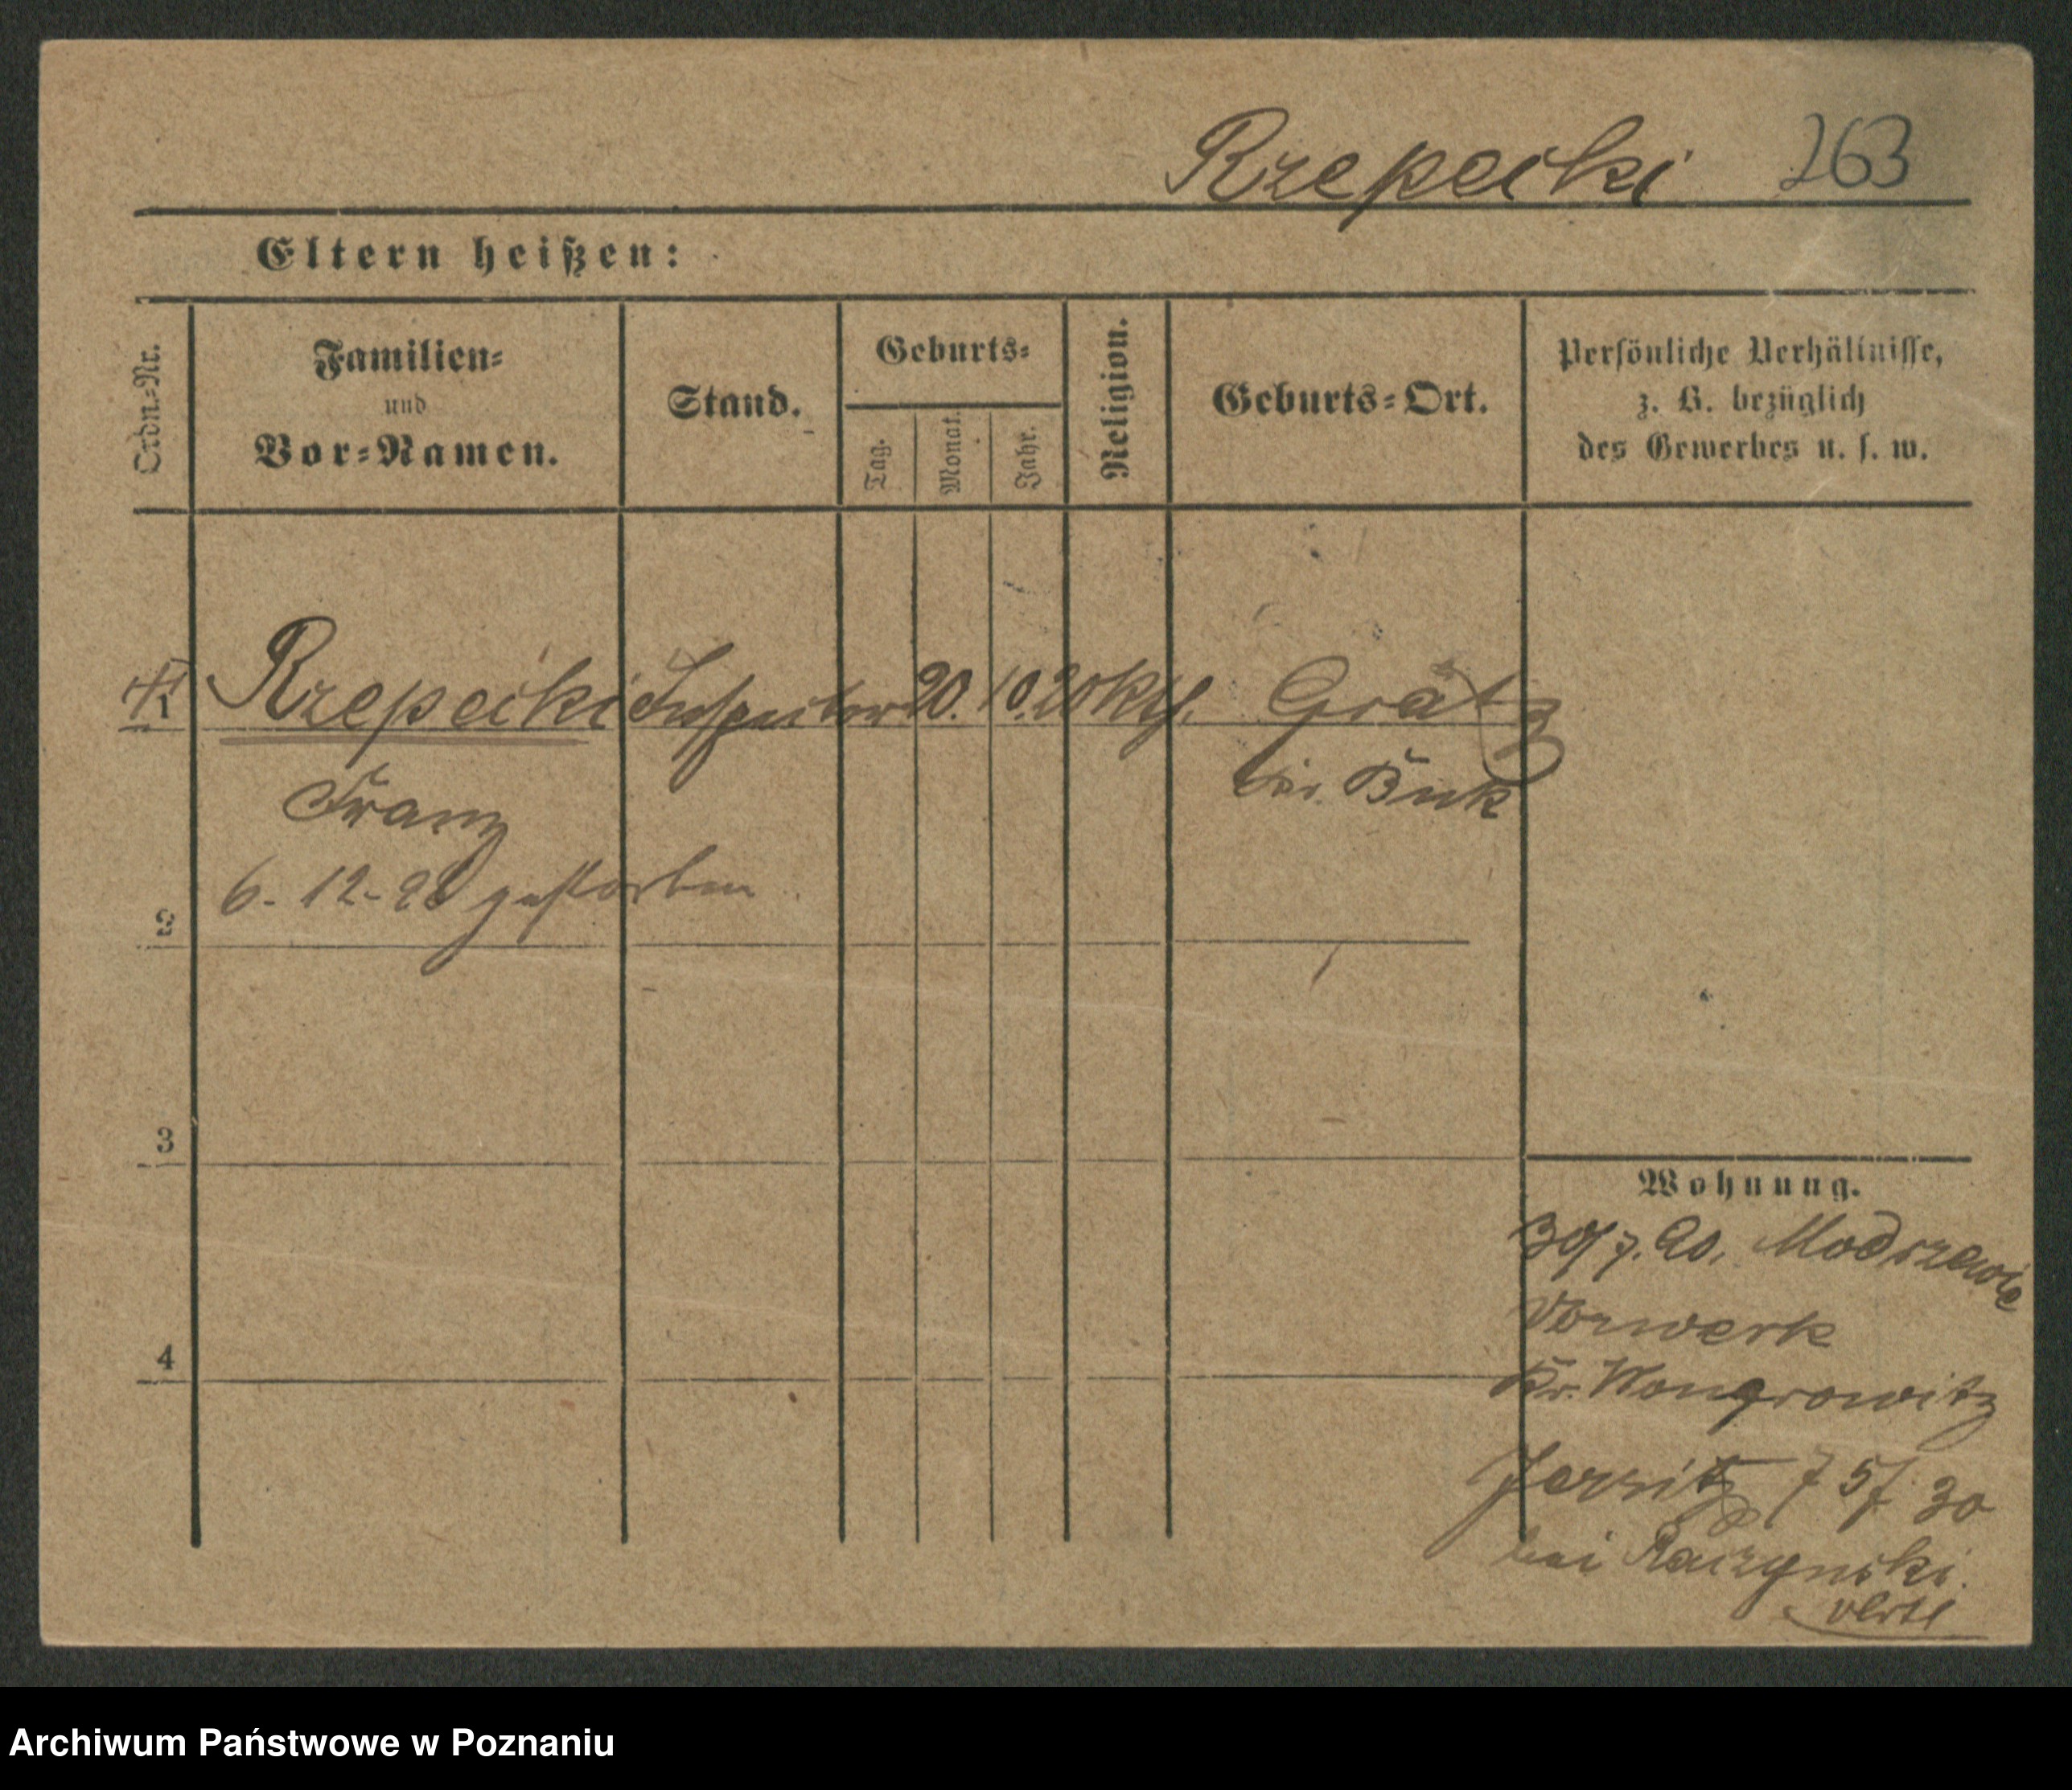 Rzepecki 263
Eltern heißen:
Ordn.-Nr.
Familien-
und
Vor-Namen.
Stand.
Geburts-
Tag.
Monat.
Jahr.
Religion.
Geburts-Ort.
Persönliche Verhältnisse,
z. B. bezüglich
des Gewerbes u. s. w.
1 Rzepecki Inspector 20. 10. 20 Kth. Grätz
Franz Kr. Buk
6-12-90 gestorben
2
3
4
Wohnung.
30/7. 90. Modrzewie
Vorwerk
Kr. Wongrowitz
Jersitz 75/30
bei Raczynski.
verte
Archiwum Państwowe w Poznaniu